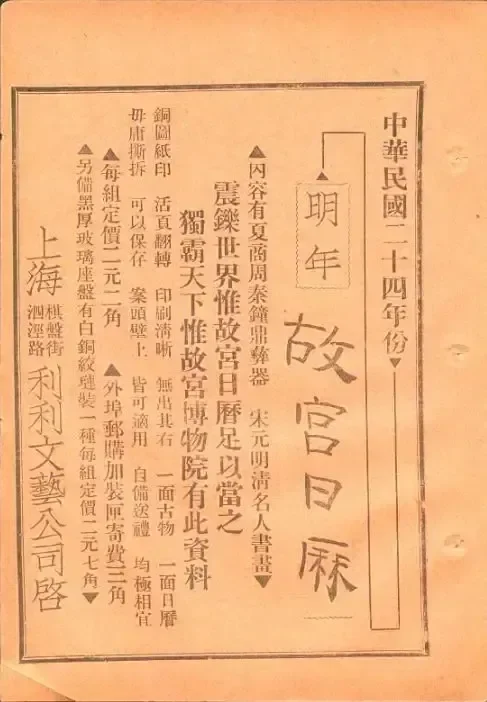 中華民國二十四年份▼
▲明年
故宮日厤
▲內容有夏商周秦鐘鼎彝器 宋元明清名人書畫▼
震鑠世界惟故宮日曆足以當之
獨霸天下惟故宮博物院有此資料
銅圖紙印 活頁翻轉 印刷清晰 無出其右 一面古物 一面日曆
毋庸撕拆 可以保存 案頭壁上 皆可適用 自備送禮 均極相宜
▲每組定價二元二角 ▲外埠郵購加裝匣寄費三角
▲另備黑厚玻璃座盤有白銅絞璉裝一種每組定價二元七角▼
上海 棋盤街 泗涇路 利利文藝公司啓